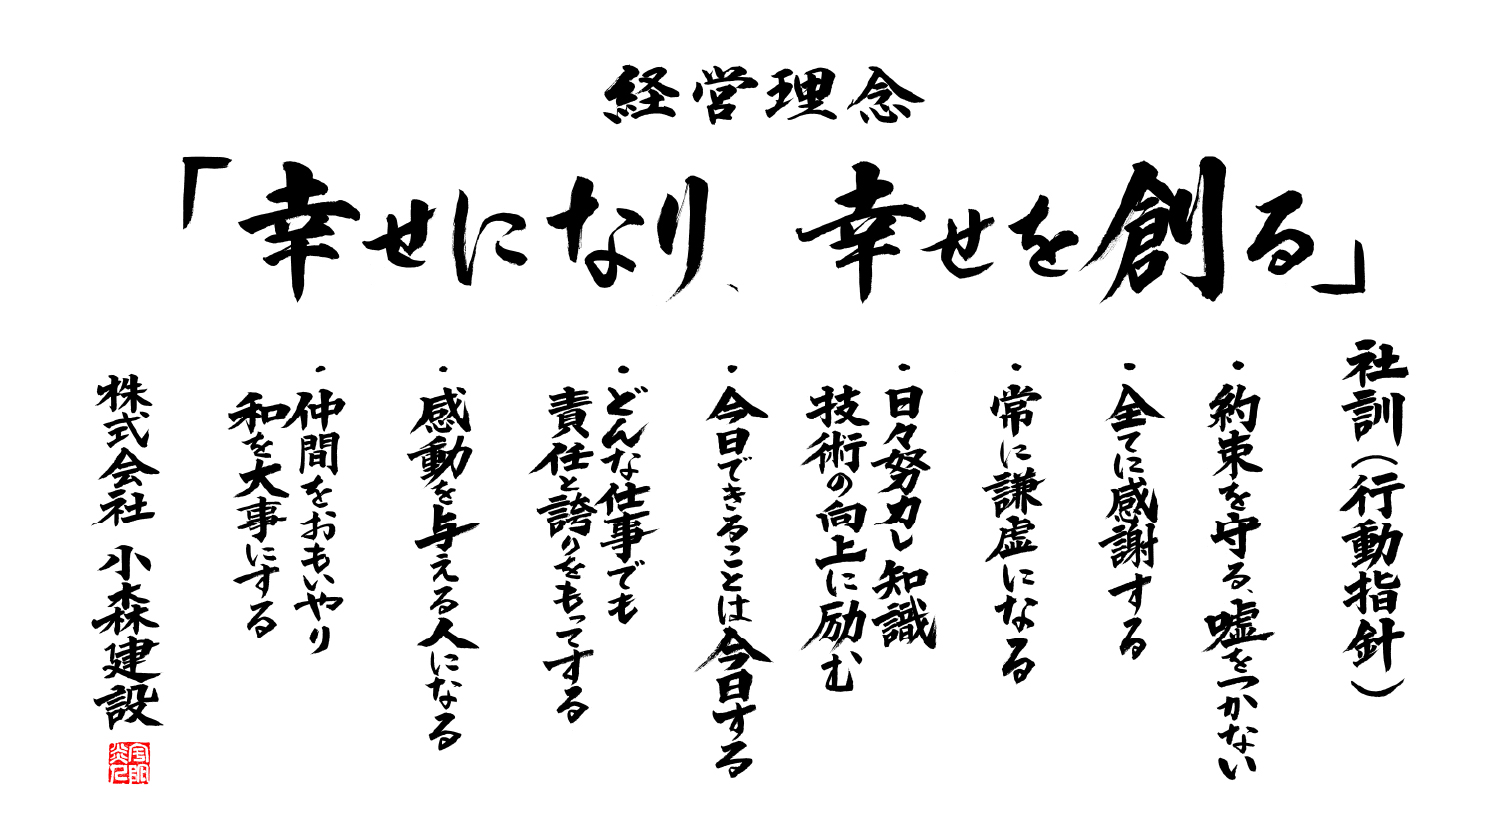 経営理念
「幸せになり、幸せを創る」
社訓(行動指針)
・約束を守る、嘘をつかない
・全てに感謝する
・常に謙虚になる
・日々努力し知識
技術の向上に励む
・今日できることは今日する
・どんな仕事でも
責任と誇りをもってする
・感動を与える人になる
・仲間をおもいやり
和を大事にする
株式会社 小森建設